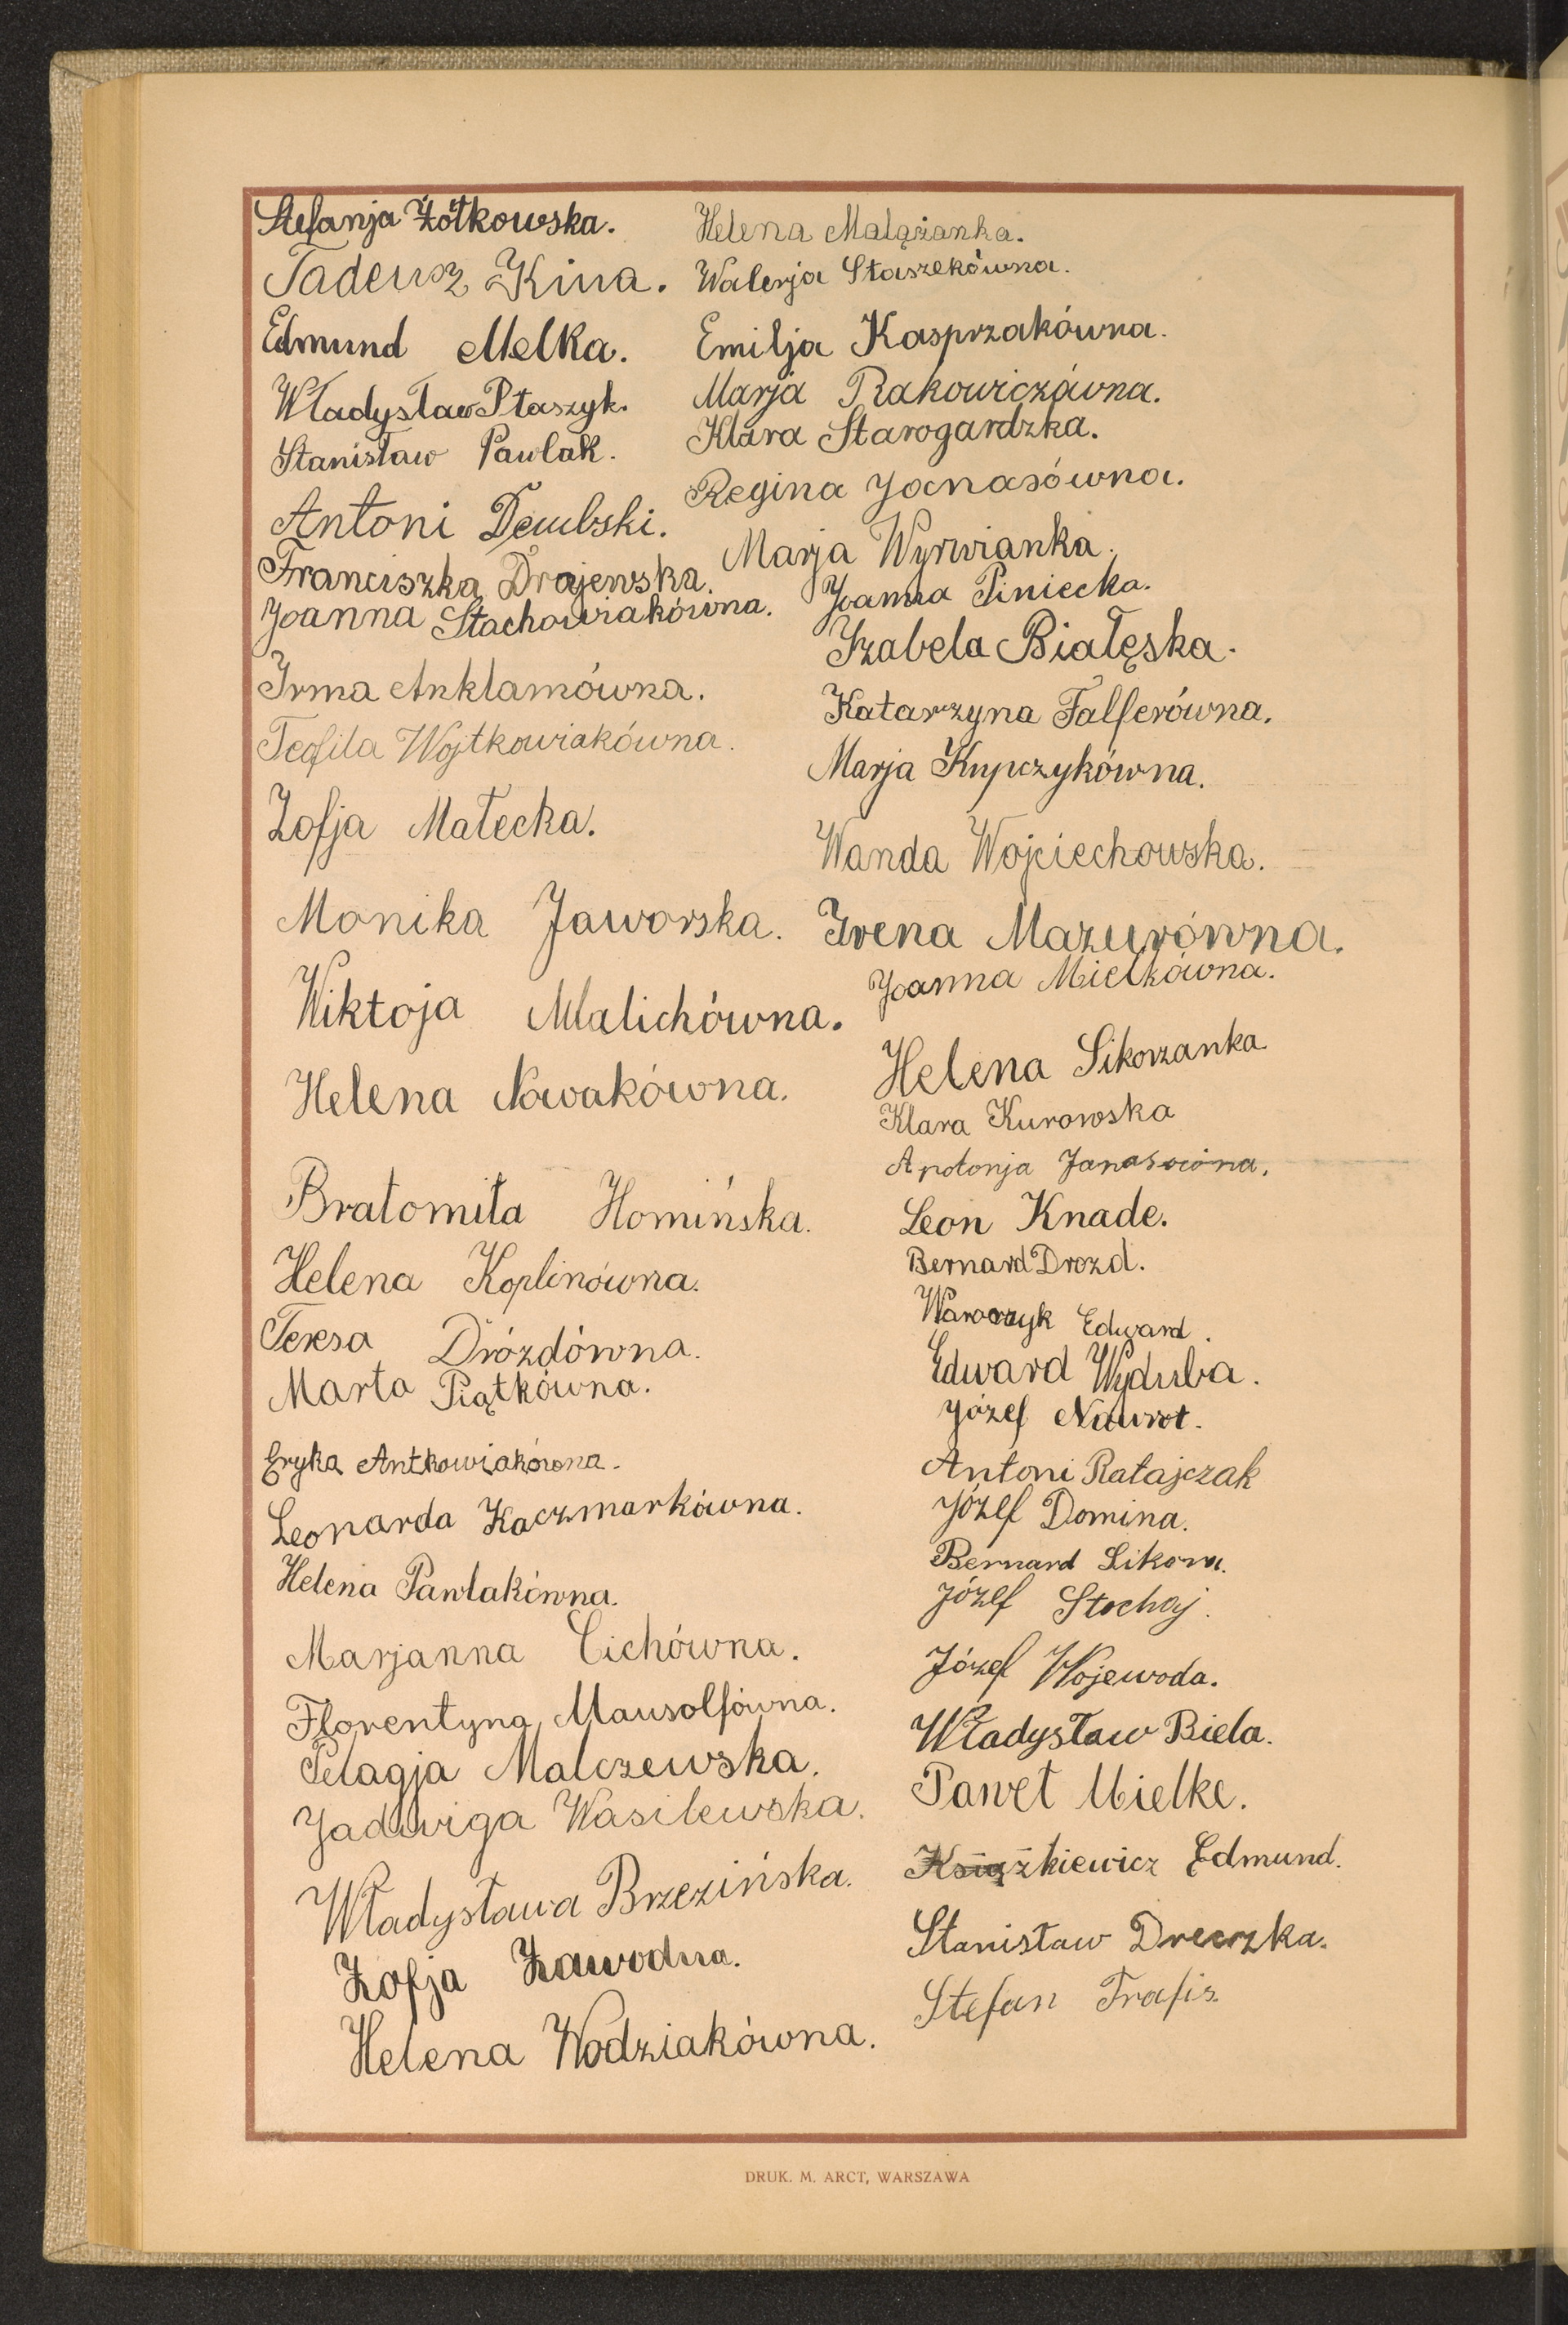 Stefanja Żółtkowska.
Tadeusz Kina.
Edmund Melka.
Władysław Ptaszyk.
Stanisław Pawlak.
Antoni Dembski.
Franciszka Drajewska.
Joanna Stachowiakówna.
Irma Anklamówna.
Teofila Wojtkowiakówna.
Zofja Małecka.
Monika Jaworska.
Wiktoja Malichówna.
Helena Nowakówna.
Bratomiła Homińska.
Helena Koplinówna.
Teresa Drózdówna.
Marta Piątkówna.
Eryka Antkowiakówna.
Leonarda Kaczmarkówna.
Helena Pawlakówna.
Marjanna Cichówna.
Florentyna Mausolfówna.
Pelagja Malczewska.
Jadwiga Wasilewska.
Władysława Brzezińska.
Zofja Zawodna.
Helena Wodziakówna.
Helena Malążanka.
Walerja Staszekówna.
Emilja Kasprzakówna.
Marja Rakowiczówna.
Klara Starogardzka.
Regina Janasówna.
Marja Wyrwianka.
Joanna Piniecka.
Izabela Białęska.
Katarzyna Falferówna.
Marja Kupczykówna.
Wanda Wojciechowska.
Irena Mazurówna.
Joanna Mielkówna.
Helena Sikorzanka
Klara Kurowska
Apolonja Janasówna.
Leon Knade.
Bernard Drozd.
Wawrzyk Edward.
Edward Wyduba.
Józef Nawrot.
Antoni Ratajczak
Józef Domina.
Bernard Sikora.
Józef Stochaj.
Józef Wojewoda.
Władysław Biela.
Paweł Mielke.
Książkiewicz Edmund.
Stanisław Dreczka.
Stefan Trafis.
DRUK. M. ARCT, WARSZAWA